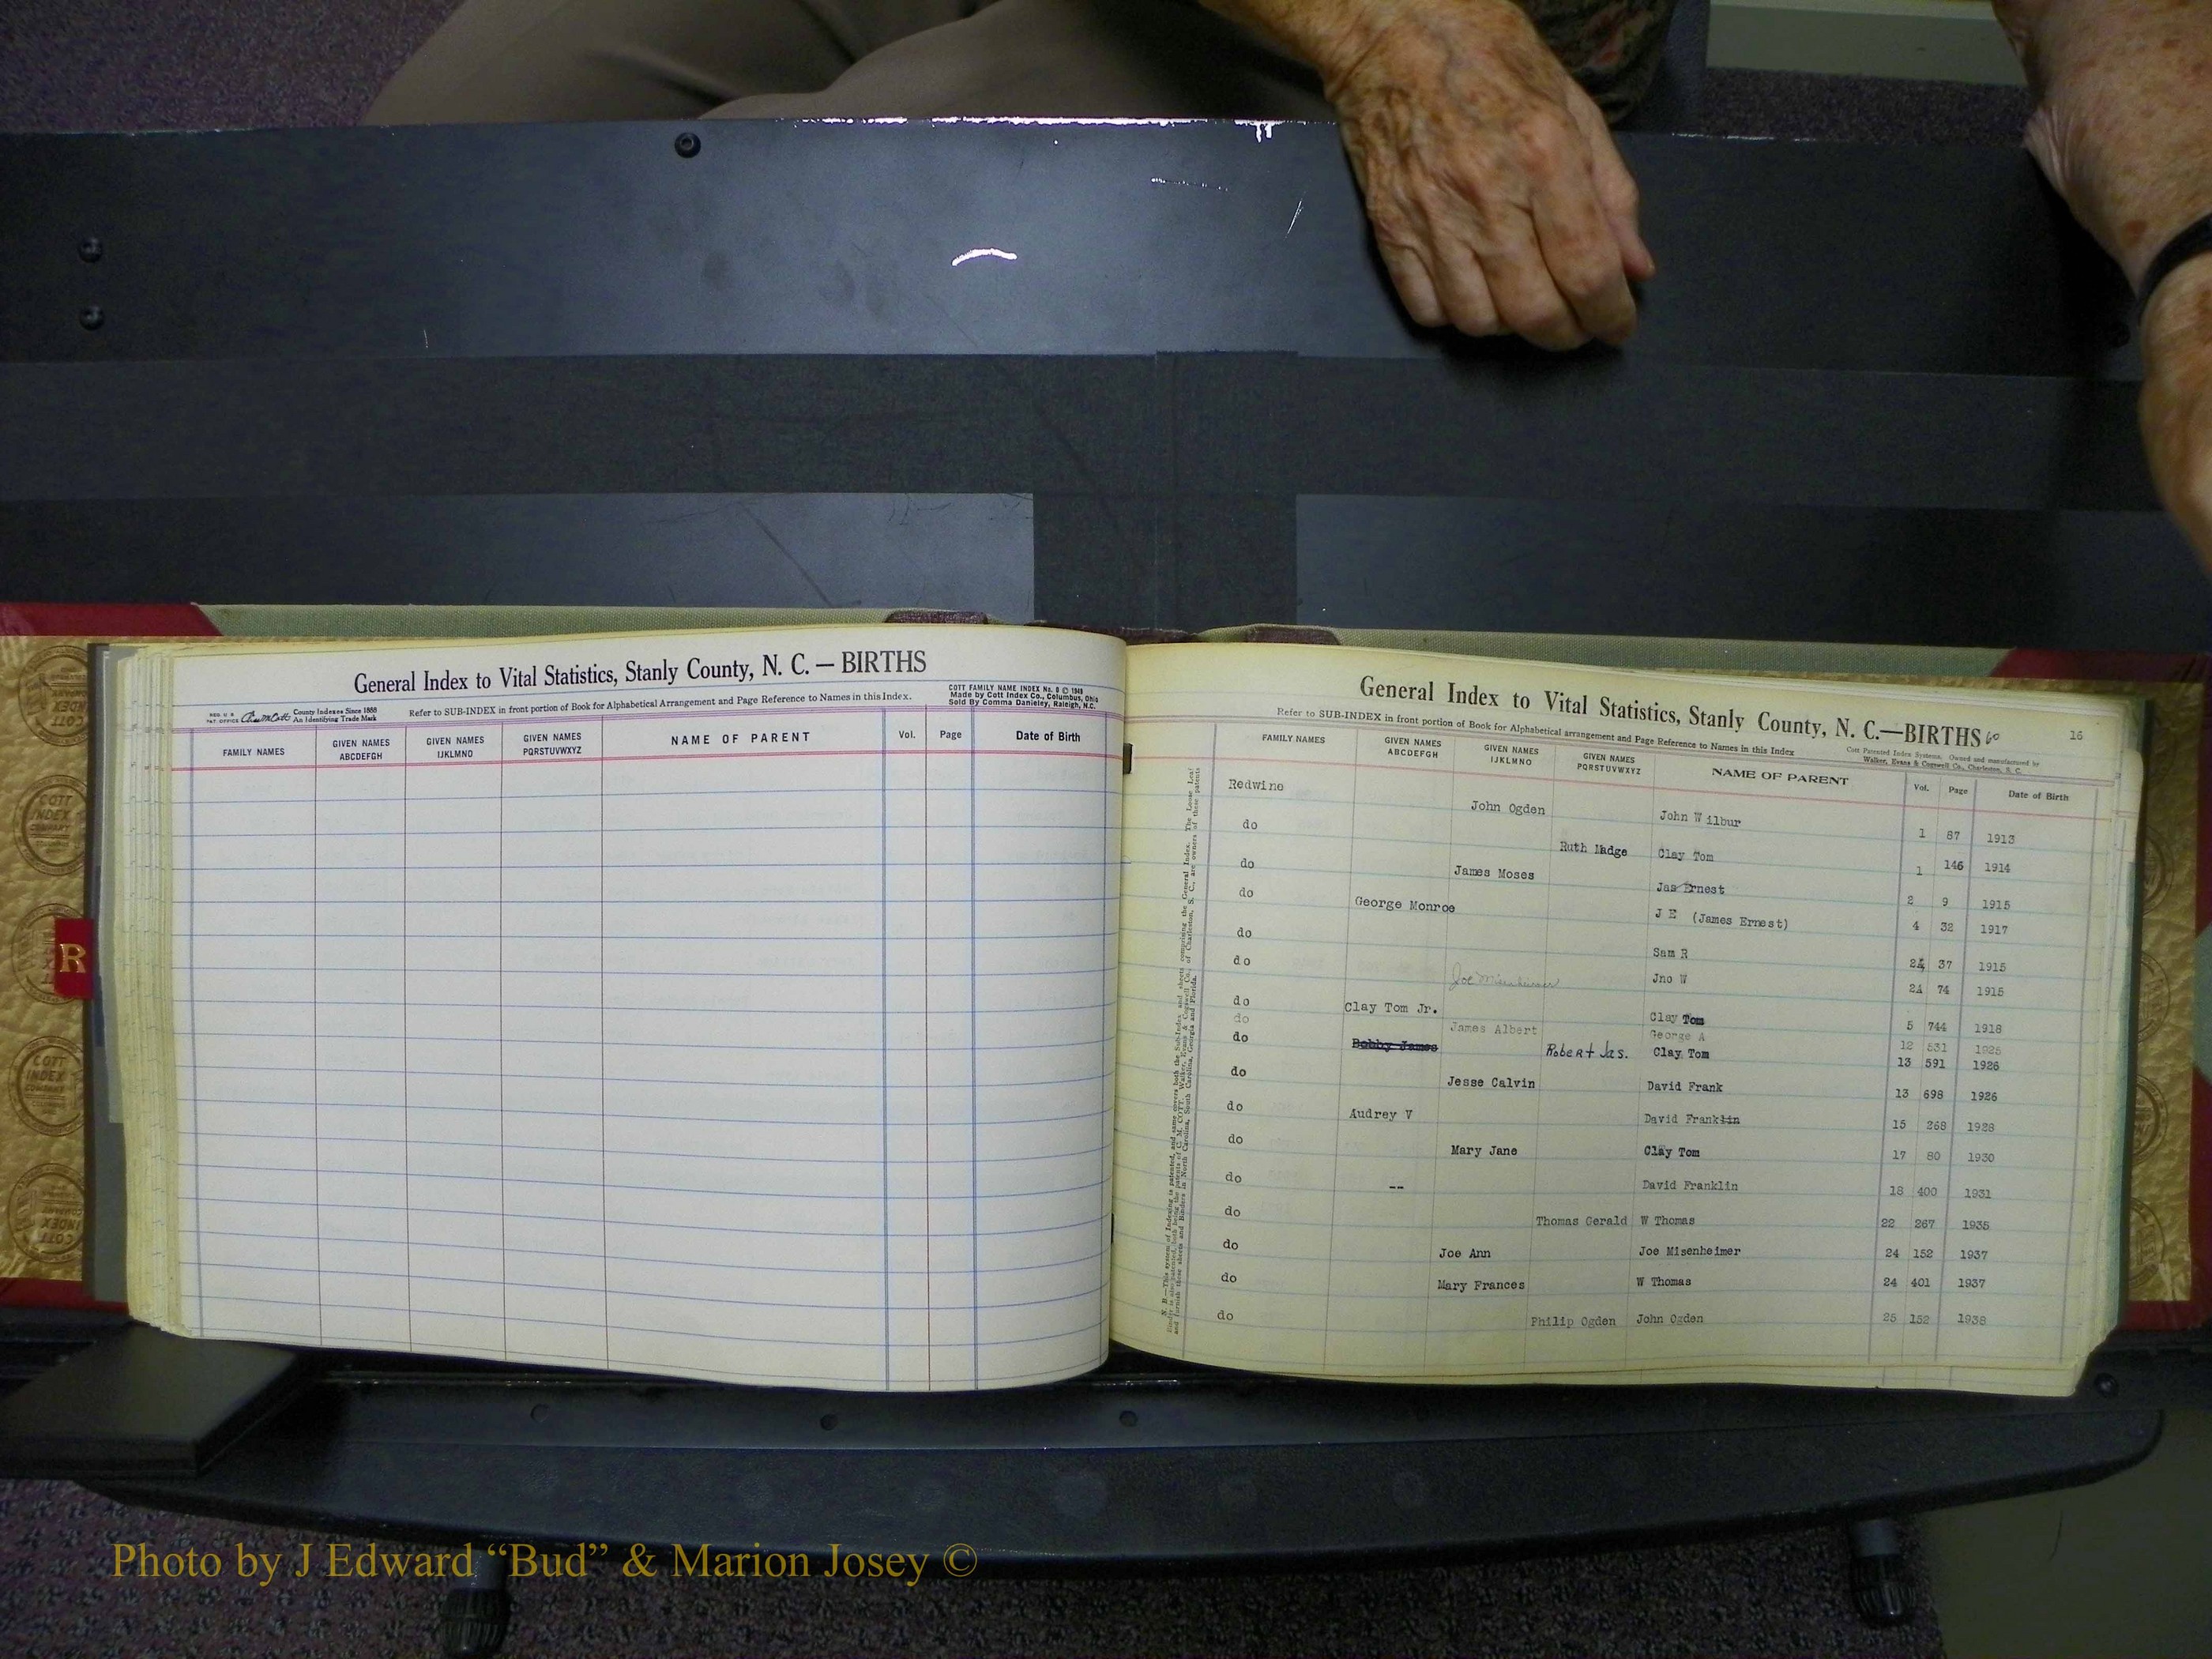 General Index to Vital Statistics, Stanly County, N. C. — BIRTHS
REG. U. S. PAT. OFFICE County Indexes Since 1888 An Identifying Trade Mark
Refer to SUB-INDEX in front portion of Book for Alphabetical Arrangement and Page Reference to Names in this Index.
COTT FAMILY NAME INDEX No. 9 © 1949
Made by Cott Index Co., Columbus, Ohio
Sold By Comma Danieley, Raleigh, N.C.
FAMILY NAMES GIVEN NAMES ABCDEFGH GIVEN NAMES IJKLMNO GIVEN NAMES PQRSTUVWXYZ NAME OF PARENT Vol. Page Date of Birth
R
General Index to Vital Statistics, Stanly County, N. C.—BIRTHS 60 16
Refer to SUB-INDEX in front portion of Book for Alphabetical arrangement and Page Reference to Names in this Index
Cott Patented Index Systems, Owned and manufactured by
Walker, Evans & Cogswell Co., Charleston, S. C.
FAMILY NAMES GIVEN NAMES ABCDEFGH GIVEN NAMES IJKLMNO GIVEN NAMES PQRSTUVWXYZ NAME OF PARENT Vol. Page Date of Birth
Redwine John Ogden John Wilbur 1 87 1913
do Ruth Madge Clay Tom 1 146 1914
do James Moses Jas Ernest 2 9 1915
do George Monroe J E (James Ernest) 4 32 1917
do Sam R 2A 37 1915
do Joe Misenheimer Jno W 2A 74 1915
do Clay Tom Jr. Clay Tom 5 744 1918
do James Albert George A 12 531 1925
do Bobby James Robert Jas. Clay Tom 13 591 1926
do Jesse Calvin David Frank 13 698 1926
do Audrey V David Franklin 15 268 1928
do Mary Jane Clay Tom 17 80 1930
do -- David Franklin 18 400 1931
do Thomas Gerald W Thomas 22 267 1935
do Joe Ann Joe Misenheimer 24 152 1937
do Mary Frances W Thomas 24 401 1937
do Philip Ogden John Ogden 25 152 1938
COTT INDEX COMPANY
Photo by J Edward “Bud” & Marion Josey ©